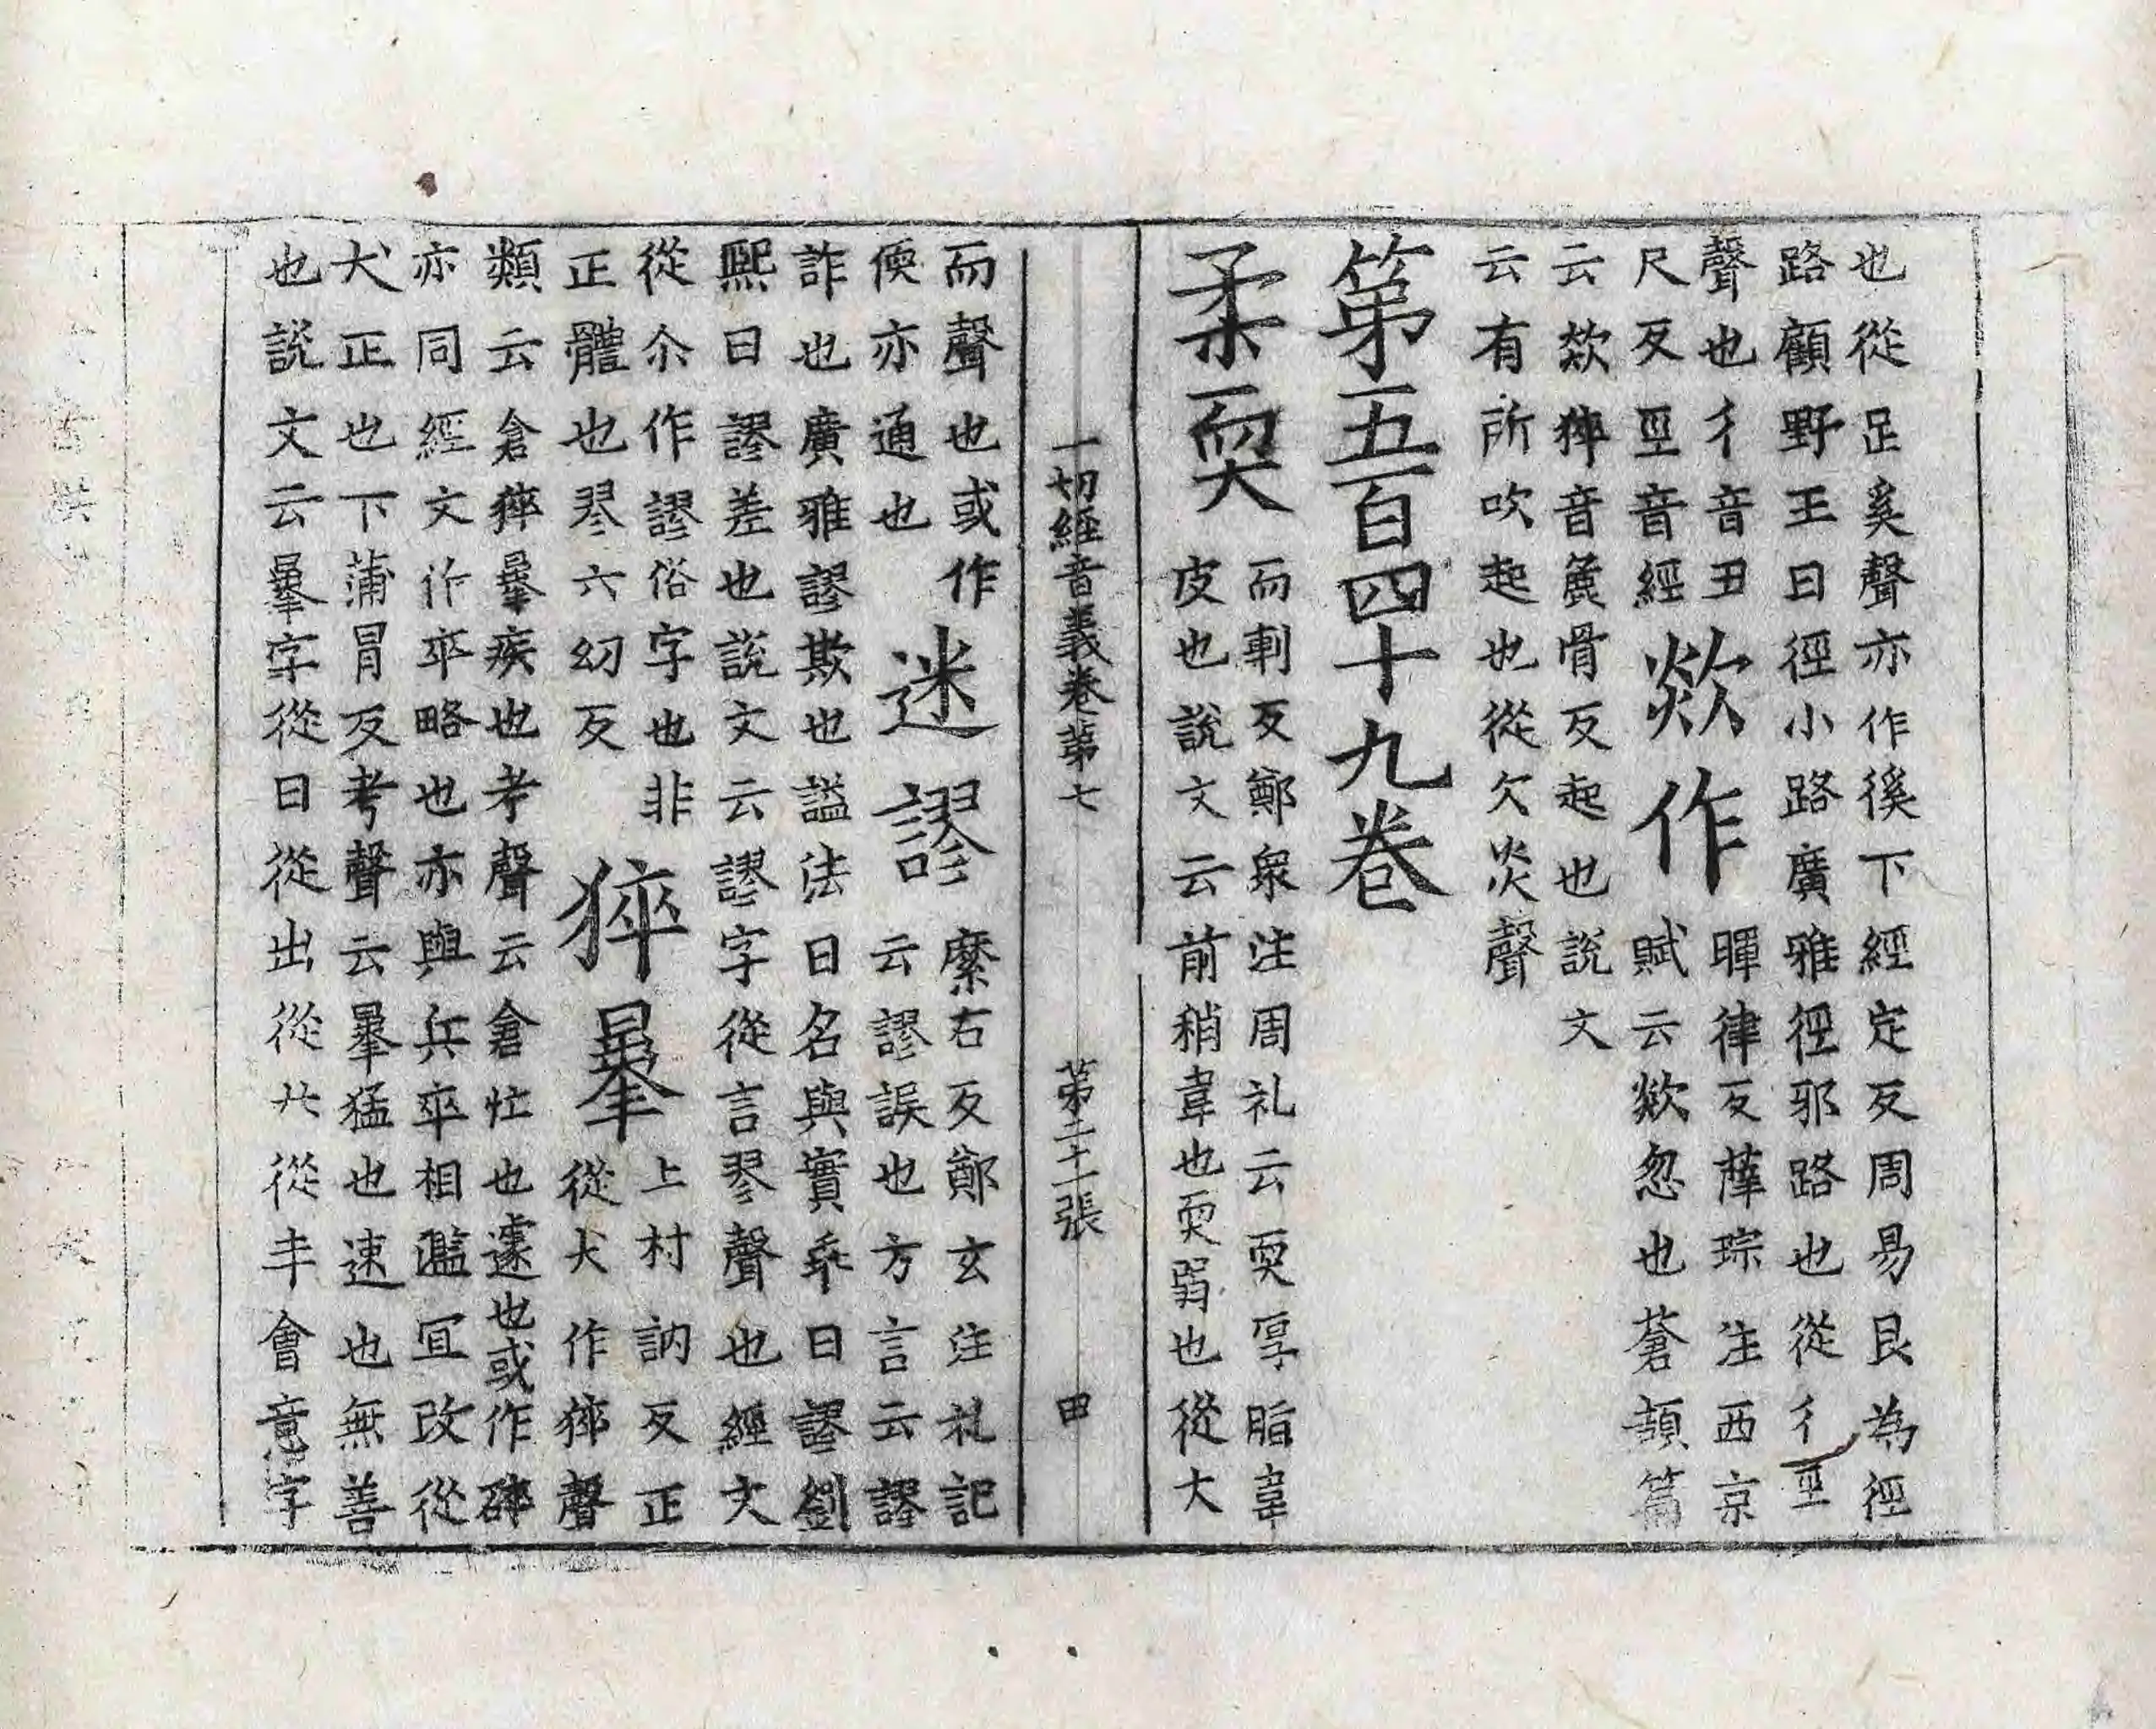 也從足奚聲亦作徯下經定反周易艮為徑
路顧野王曰徑小路廣雅徑邪路也從彳巠
聲也彳音丑
尺反巠音經
欻作
暉律反薩琮注西京
賦云欻忽也蒼頡篇
云欻猝音麁骨反起也說文
云有所吹起也從欠炎聲
第五百四十九卷
柔耎
而剸反鄭衆注周礼云耎厚脂韋
皮也說文云前稍韋也耎弱也從大
一切經音義卷第七 第二十二張 甲
而聲也或作
㑃亦通也
迷謬
縻右反鄭玄注礼記
云謬誤也方言云謬
詐也廣雅謬欺也謚法曰名與實乖曰謬劉
熙曰謬差也說文云謬字從言翏聲也經文
從尒作謬俗字也非
正體也翏六幼反
猝暴
上村訥反正
從犬作猝聲
類云倉猝暴疾也考聲云倉忙也遽也或作
亦同經文作卒略也亦與兵卒相濫冝改從
犬正也下蒲冐反考聲云暴猛也速也無善
也說文云暴字從日從出從廾從夲會意字